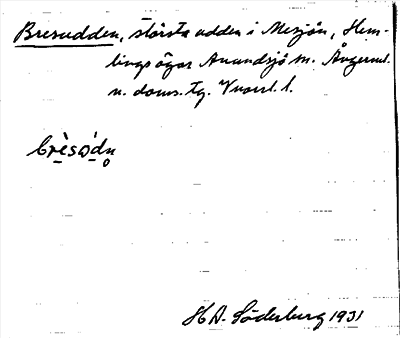 Bresudden, största udden i Mesjön, Hem-
lings ägor Anundsjö sn. Ångerml.
n. doms. tg. Vnorrl. l.
brèsὼdn̥
H A. Söderberg 1931